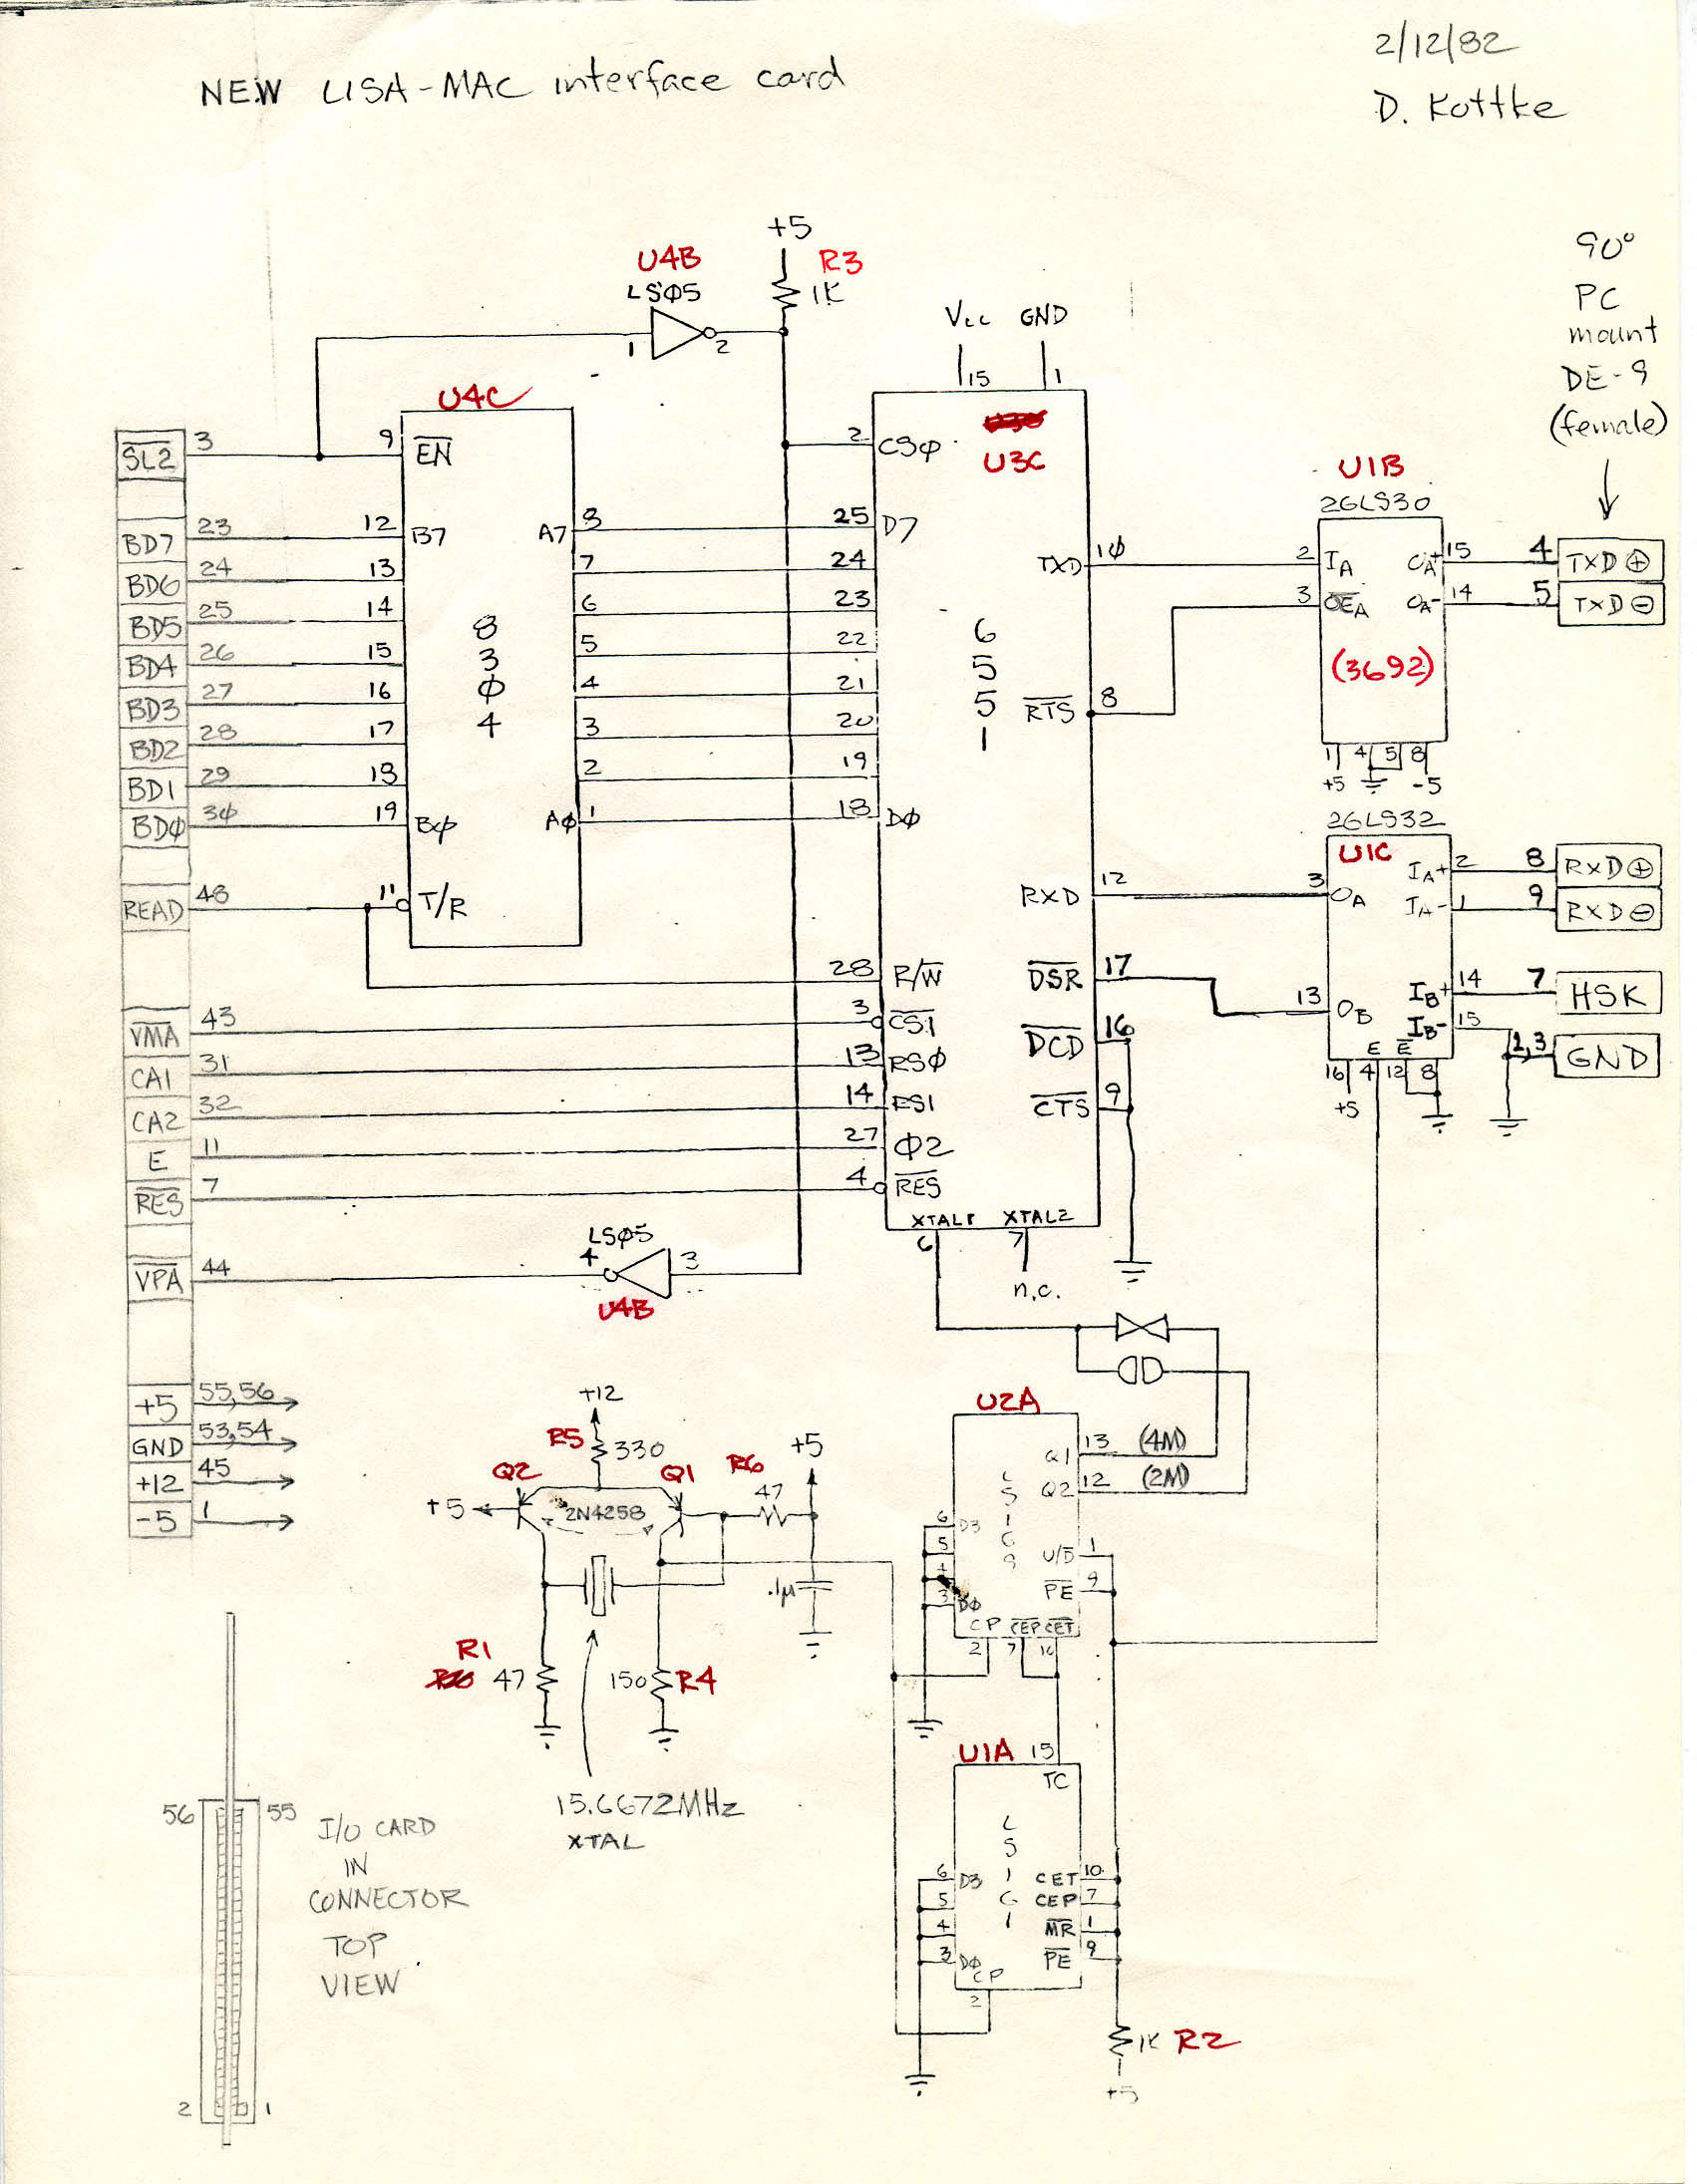 2/12/82
NEW LISA-MAC interface card
D. Kottke
+5
U4B
R3
LSØ5
1K
1
2
90°
PC
mount
DE-9
(female)
Vcc GND
15
1
U4C
SL2
3
9
EN
2
CSØ
U3C
U1B
26LS30
BD7
23
12
B7
A7
8
25
D7
BD6
24
13
7
24
BD5
25
14
6
23
BD4
26
15
5
22
BD3
27
16
4
21
BD2
28
17
3
20
BD1
29
18
2
19
BDØ
3Ø
19
BØ
AØ
1
18
DØ
8
3
Ø
4
6
5
5
1
TXD
1Ø
2
IA
OA+
15
4
TXD⊕
3
OEA
OA-
14
5
TXD⊖
(3692)
RTS
8
1
4
5
8
+5
-5
26LS32
U1C
READ
48
11
T/R
RXD
12
3
OA
IA+
2
8
RXD⊕
IA-
1
9
RXD⊖
28
R/W
DSR
17
13
OB
IB+
14
7
HSK
IB-
15
2,3
GND
VMA
43
3
CS1
DCD
16
E
E
16
4
12
8
+5
CA1
31
13
RSØ
CA2
32
14
RS1
CTS
9
E
11
27
Φ2
RES
7
4
RES
XTAL1
XTAL2
6
7
n.c.
LSØ5
VPA
44
4
3
U4B
+5
55,56
GND
53,54
+12
45
-5
1
+12
R5
330
Q2
Q1
R6
+5
47
+5
2N4258
.1µ
R1
47
150
R4
15.6672MHz
XTAL
U2A
Q1
13
(4M)
Q2
12
(2M)
LS169
6
D3
5
4
3
DØ
U/D
1
PE
9
CP
CEP
CET
2
7
10
U1A
15
TC
LS161
6
D3
5
4
3
DØ
CP
2
CET
10
CEP
7
MR
1
PE
9
1K
R2
+5
56
55
I/O CARD
IN
CONNECTOR
TOP
VIEW
2
1